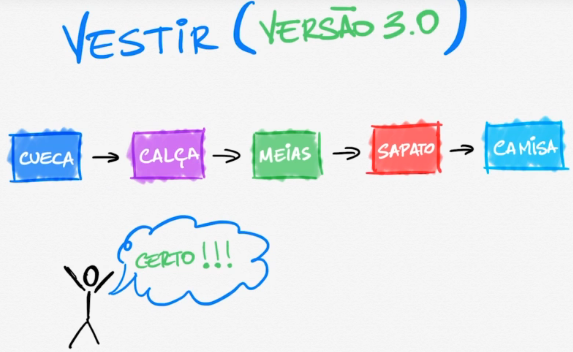 VESTIR (VERSÃO 3.0)
CUECA → CALÇA → MEIAS → SAPATO → CAMISA
CERTO!!!